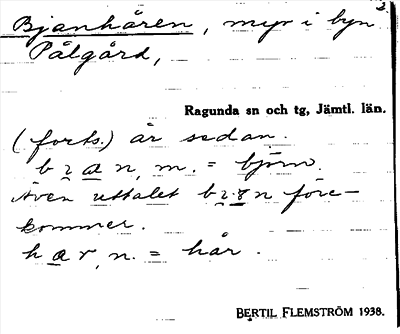 2.
Bjanhåren, myr i byn
Pålgård,
Ragunda sn och tg, Jämtl. län.
(forts.) är sedan.
m. = björn.
Även uttalet före-
kommer.
n. = hår.
BERTIL FLEMSTRÖM 1938.